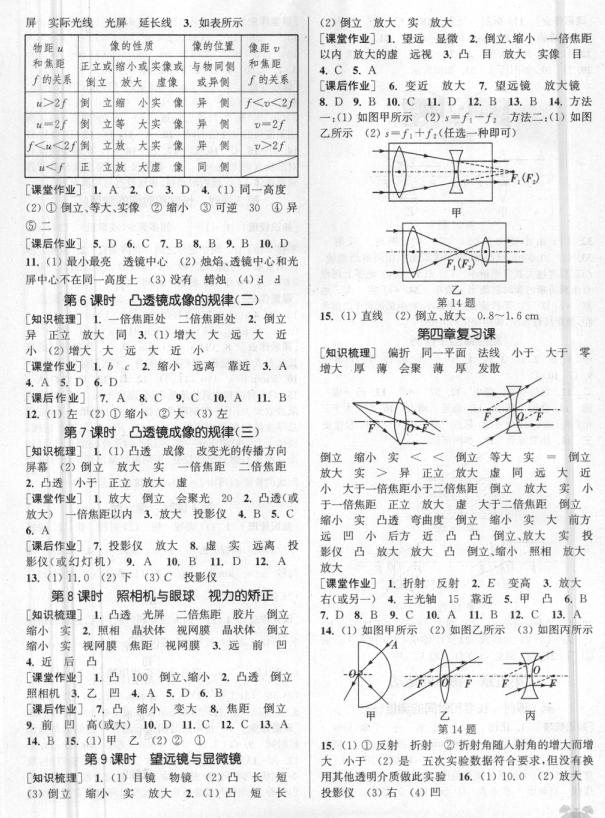 屏 实际光线 光屏 延长线 3. 如表所示
物距 u 和焦距 f 的关系 像的性质 像的位置 像距 v 和焦距 f 的关系
正立或倒立 缩小或放大 实像或虚像 与物同侧或异侧
u>2f 倒 立 缩 小 实 像 异 侧 f<v<2f
u=2f 倒 立 等 大 实 像 异 侧 v=2f
f<u<2f 倒 立 放 大 实 像 异 侧 v>2f
u<f 正 立 放 大 虚 像 同 侧
[课堂作业] 1. A 2. C 3. D 4. (1) 同一高度
(2) ① 倒立、等大、实像 ② 缩小 ③ 可逆 30 ④ 异
⑤ 二
[课后作业] 5. D 6. C 7. B 8. B 9. B 10. D
11. (1) 最小最亮 透镜中心 (2) 烛焰、透镜中心和光
屏中心不在同一高度上 (3) 没有 蜡烛 (4)
第 6 课时 凸透镜成像的规律(二)
[知识梳理] 1. 一倍焦距处 二倍焦距处 2. 倒立
异 正立 放大 同 3. (1) 增大 大 远 大 近
小 (2) 增大 大 远 大 近 小
[课堂作业] 1. b c 2. 缩小 远离 靠近 3. A
4. A 5. D 6. D
[课后作业] 7. A 8. C 9. C 10. A 11. B
12. (1) 左 (2) ① 缩小 ② 大 (3) 左
第 7 课时 凸透镜成像的规律(三)
[知识梳理] 1. (1) 凸透 成像 改变光的传播方向
屏幕 (2) 倒立 放大 实 一倍焦距 二倍焦距
2. 凸透 小于 正立 放大 虚
[课堂作业] 1. 放大 倒立 会聚光 20 2. 凸透(或
放大) 一倍焦距以内 3. 放大 投影仪 4. B 5. C
6. A
[课后作业] 7. 投影仪 放大 8. 虚 实 远离 投
影仪(或幻灯机) 9. A 10. B 11. D 12. A
13. (1) 11.0 (2) 下 (3) C 投影仪
第 8 课时 照相机与眼球 视力的矫正
[知识梳理] 1. 凸透 光屏 二倍焦距 胶片 倒立
缩小 实 2. 照相 晶状体 视网膜 晶状体 倒立
缩小 实 视网膜 焦距 视网膜 3. 远 前 凹
4. 近 后 凸
[课堂作业] 1. 凸 100 倒立、缩小 2. 凸透 倒立
照相机 3. 乙 凹 4. A 5. D 6. B
[课后作业] 7. 凸 缩小 变大 8. 焦距 倒立
9. 前 凹 高(或大) 10. D 11. C 12. C 13. A
14. B 15. (1) 甲 乙 (2) ② ①
第 9 课时 望远镜与显微镜
[知识梳理] 1. (1) 目镜 物镜 (2) 凸 长 短
(3) 倒立 缩小 实 放大 2. (1) 凸 短 长
(2) 倒立 放大 实 放大
[课堂作业] 1. 望远 显微 2. 倒立、缩小 一倍焦距
以内 放大的虚 远视 3. 凸 目 放大 实像 目
4. C 5. A
[课后作业] 6. 变近 放大 7. 望远镜 放大镜
8. D 9. B 10. C 11. D 12. B 13. B 14. 方法
一:(1) 如图甲所示 (2) s=f₁-f₂ 方法二:(1) 如图
乙所示 (2) s=f₁+f₂(任选一种即可)
F₁(F₂)
甲
F₁(F₂)
乙
第 14 题
15. (1) 直线 (2) 倒立、放大 0.8~1.6 cm
第四章复习课
[知识梳理] 偏折 同一平面 法线 小于 大于 零
增大 厚 薄 会聚 薄 厚 发散
F O F F O F
倒立 缩小 实 < < 倒立 等大 实 = 倒立
放大 实 > 异 正立 放大 虚 同 远 大 近
小 大于一倍焦距小于二倍焦距 倒立 放大 实 小
于一倍焦距 正立 放大 虚 大于二倍焦距 倒立
缩小 实 凸透 弯曲度 倒立 缩小 实 大 前方
远 凹 小 后方 近 凸 凸 倒立、放大 实 投
影仪 凸 放大 放大 凸 倒立、缩小 照相 放大
放大
[课堂作业] 1. 折射 反射 2. E 变高 3. 放大
右(或另一) 4. 主光轴 15 靠近 5. 甲 凸 6. B
7. D 8. B 9. C 10. A 11. B 12. C 13. A
14. (1) 如图甲所示 (2) 如图乙所示 (3) 如图丙所示
O A F O F F O F
甲 乙 丙
第 14 题
15. (1) ① 反射 折射 ② 折射角随入射角的增大而增
大 小于 (2) 是 五次实验数据符合要求,但没有换
用其他透明介质做此实验 16. (1) 10.0 (2) 放大
投影仪 (3) 右 (4) 凹